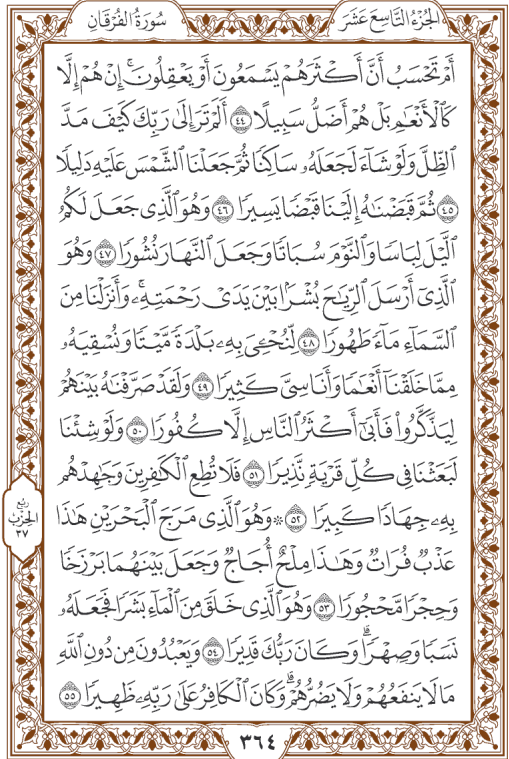 الجُزْءُ التَّاسِعَ عَشَرَ
سُورَةُ الفُرْقَانِ
أَمْ تَحْسَبُ أَنَّ أَكْثَرَهُمْ يَسْمَعُونَ أَوْ يَعْقِلُونَ ۚ إِنْ هُمْ إِلَّا
كَالْأَنْعَـٰمِ بَلْ هُمْ أَضَلُّ سَبِيلًا ٤٤ أَلَمْ تَرَ إِلَىٰ رَبِّكَ كَيْفَ مَدَّ
الظِّلَّ وَلَوْ شَآءَ لَجَعَلَهُۥ سَاكِنًا ثُمَّ جَعَلْنَا الشَّمْسَ عَلَيْهِ دَلِيلًا
٤٥ ثُمَّ قَبَضْنَـٰهُ إِلَيْنَا قَبْضًا يَسِيرًا ٤٦ وَهُوَ ٱلَّذِى جَعَلَ لَكُمُ
ٱلَّيْلَ لِبَاسًا وَٱلنَّوْمَ سُبَاتًا وَجَعَلَ ٱلنَّهَارَ نُشُورًا ٤٧ وَهُوَ
ٱلَّذِىٓ أَرْسَلَ ٱلرِّيَـٰحَ بُشْرًۢا بَيْنَ يَدَىْ رَحْمَتِهِۦ ۚ وَأَنزَلْنَا مِنَ
ٱلسَّمَآءِ مَآءً طَهُورًا ٤٨ لِّنُحْـِۧىَ بِهِۦ بَلْدَةً مَّيْتًا وَنُسْقِيَهُۥ
مِمَّا خَلَقْنَآ أَنْعَـٰمًا وَأَنَاسِىَّ كَثِيرًا ٤٩ وَلَقَدْ صَرَّفْنَـٰهُ بَيْنَهُمْ
لِيَذَّكَّرُوا۟ فَأَبَىٰٓ أَكْثَرُ ٱلنَّاسِ إِلَّا كُفُورًا ٥٠ وَلَوْ شِئْنَا
لَبَعَثْنَا فِى كُلِّ قَرْيَةٍ نَّذِيرًا ٥١ فَلَا تُطِعِ ٱلْكَـٰفِرِينَ وَجَـٰهِدْهُم
بِهِۦ جِهَادًا كَبِيرًا ٥٢ ۞ وَهُوَ ٱلَّذِى مَرَجَ ٱلْبَحْرَيْنِ هَـٰذَا
عَذْبٌ فُرَاتٌ وَهَـٰذَا مِلْحٌ أُجَاجٌ وَجَعَلَ بَيْنَهُمَا بَرْزَخًا
وَحِجْرًا مَّحْجُورًا ٥٣ وَهُوَ ٱلَّذِى خَلَقَ مِنَ ٱلْمَآءِ بَشَرًا فَجَعَلَهُۥ
نَسَبًا وَصِهْرًا ۗ وَكَانَ رَبُّكَ قَدِيرًا ٥٤ وَيَعْبُدُونَ مِن دُونِ ٱللَّهِ
مَا لَا يَنفَعُهُمْ وَلَا يَضُرُّهُمْ ۗ وَكَانَ ٱلْكَافِرُ عَلَىٰ رَبِّهِۦ ظَهِيرًا ٥٥
رُبْعُ
الحِزْبِ
٣٧
٣٦٤